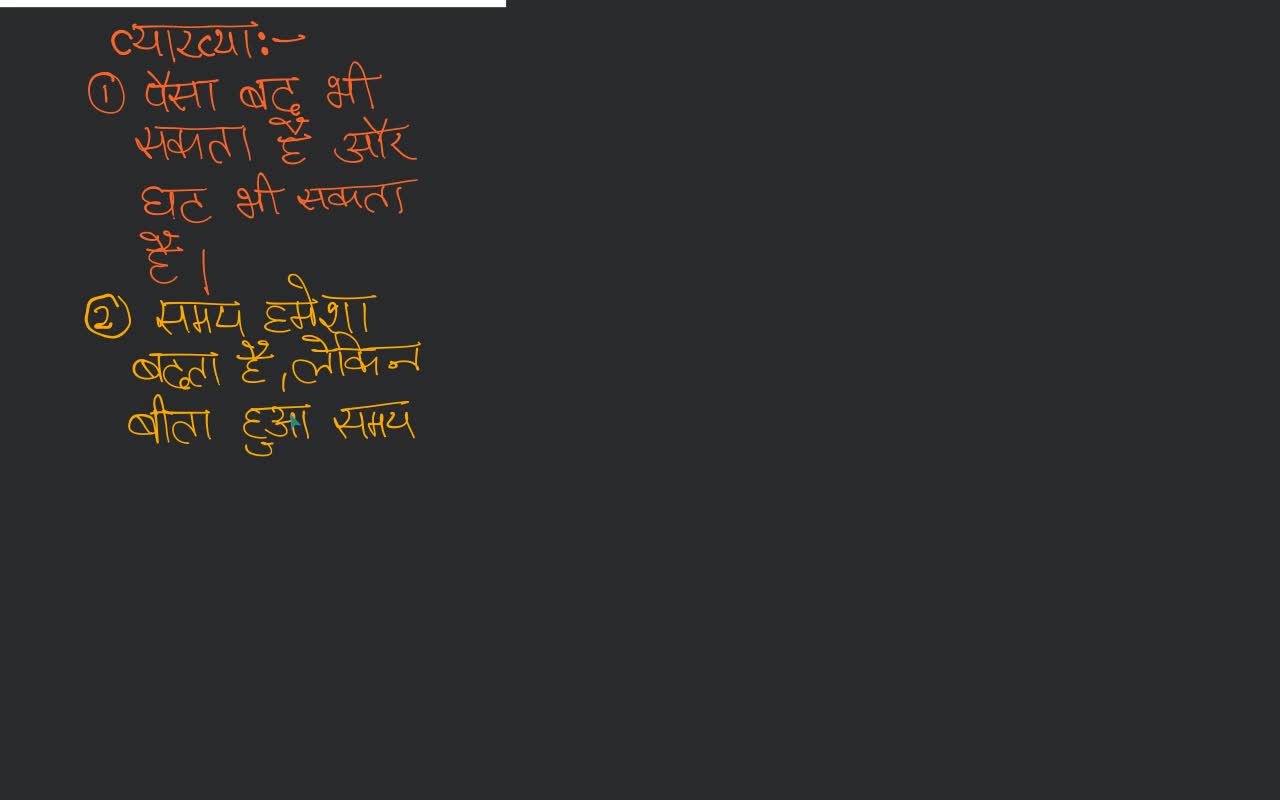 व्याख्या:-
① पैसा बढ़ भी
सकता है और
घट भी सकता
है।
② समय हमेशा
बढ़ता है, लेकिन
बीता हुआ समय